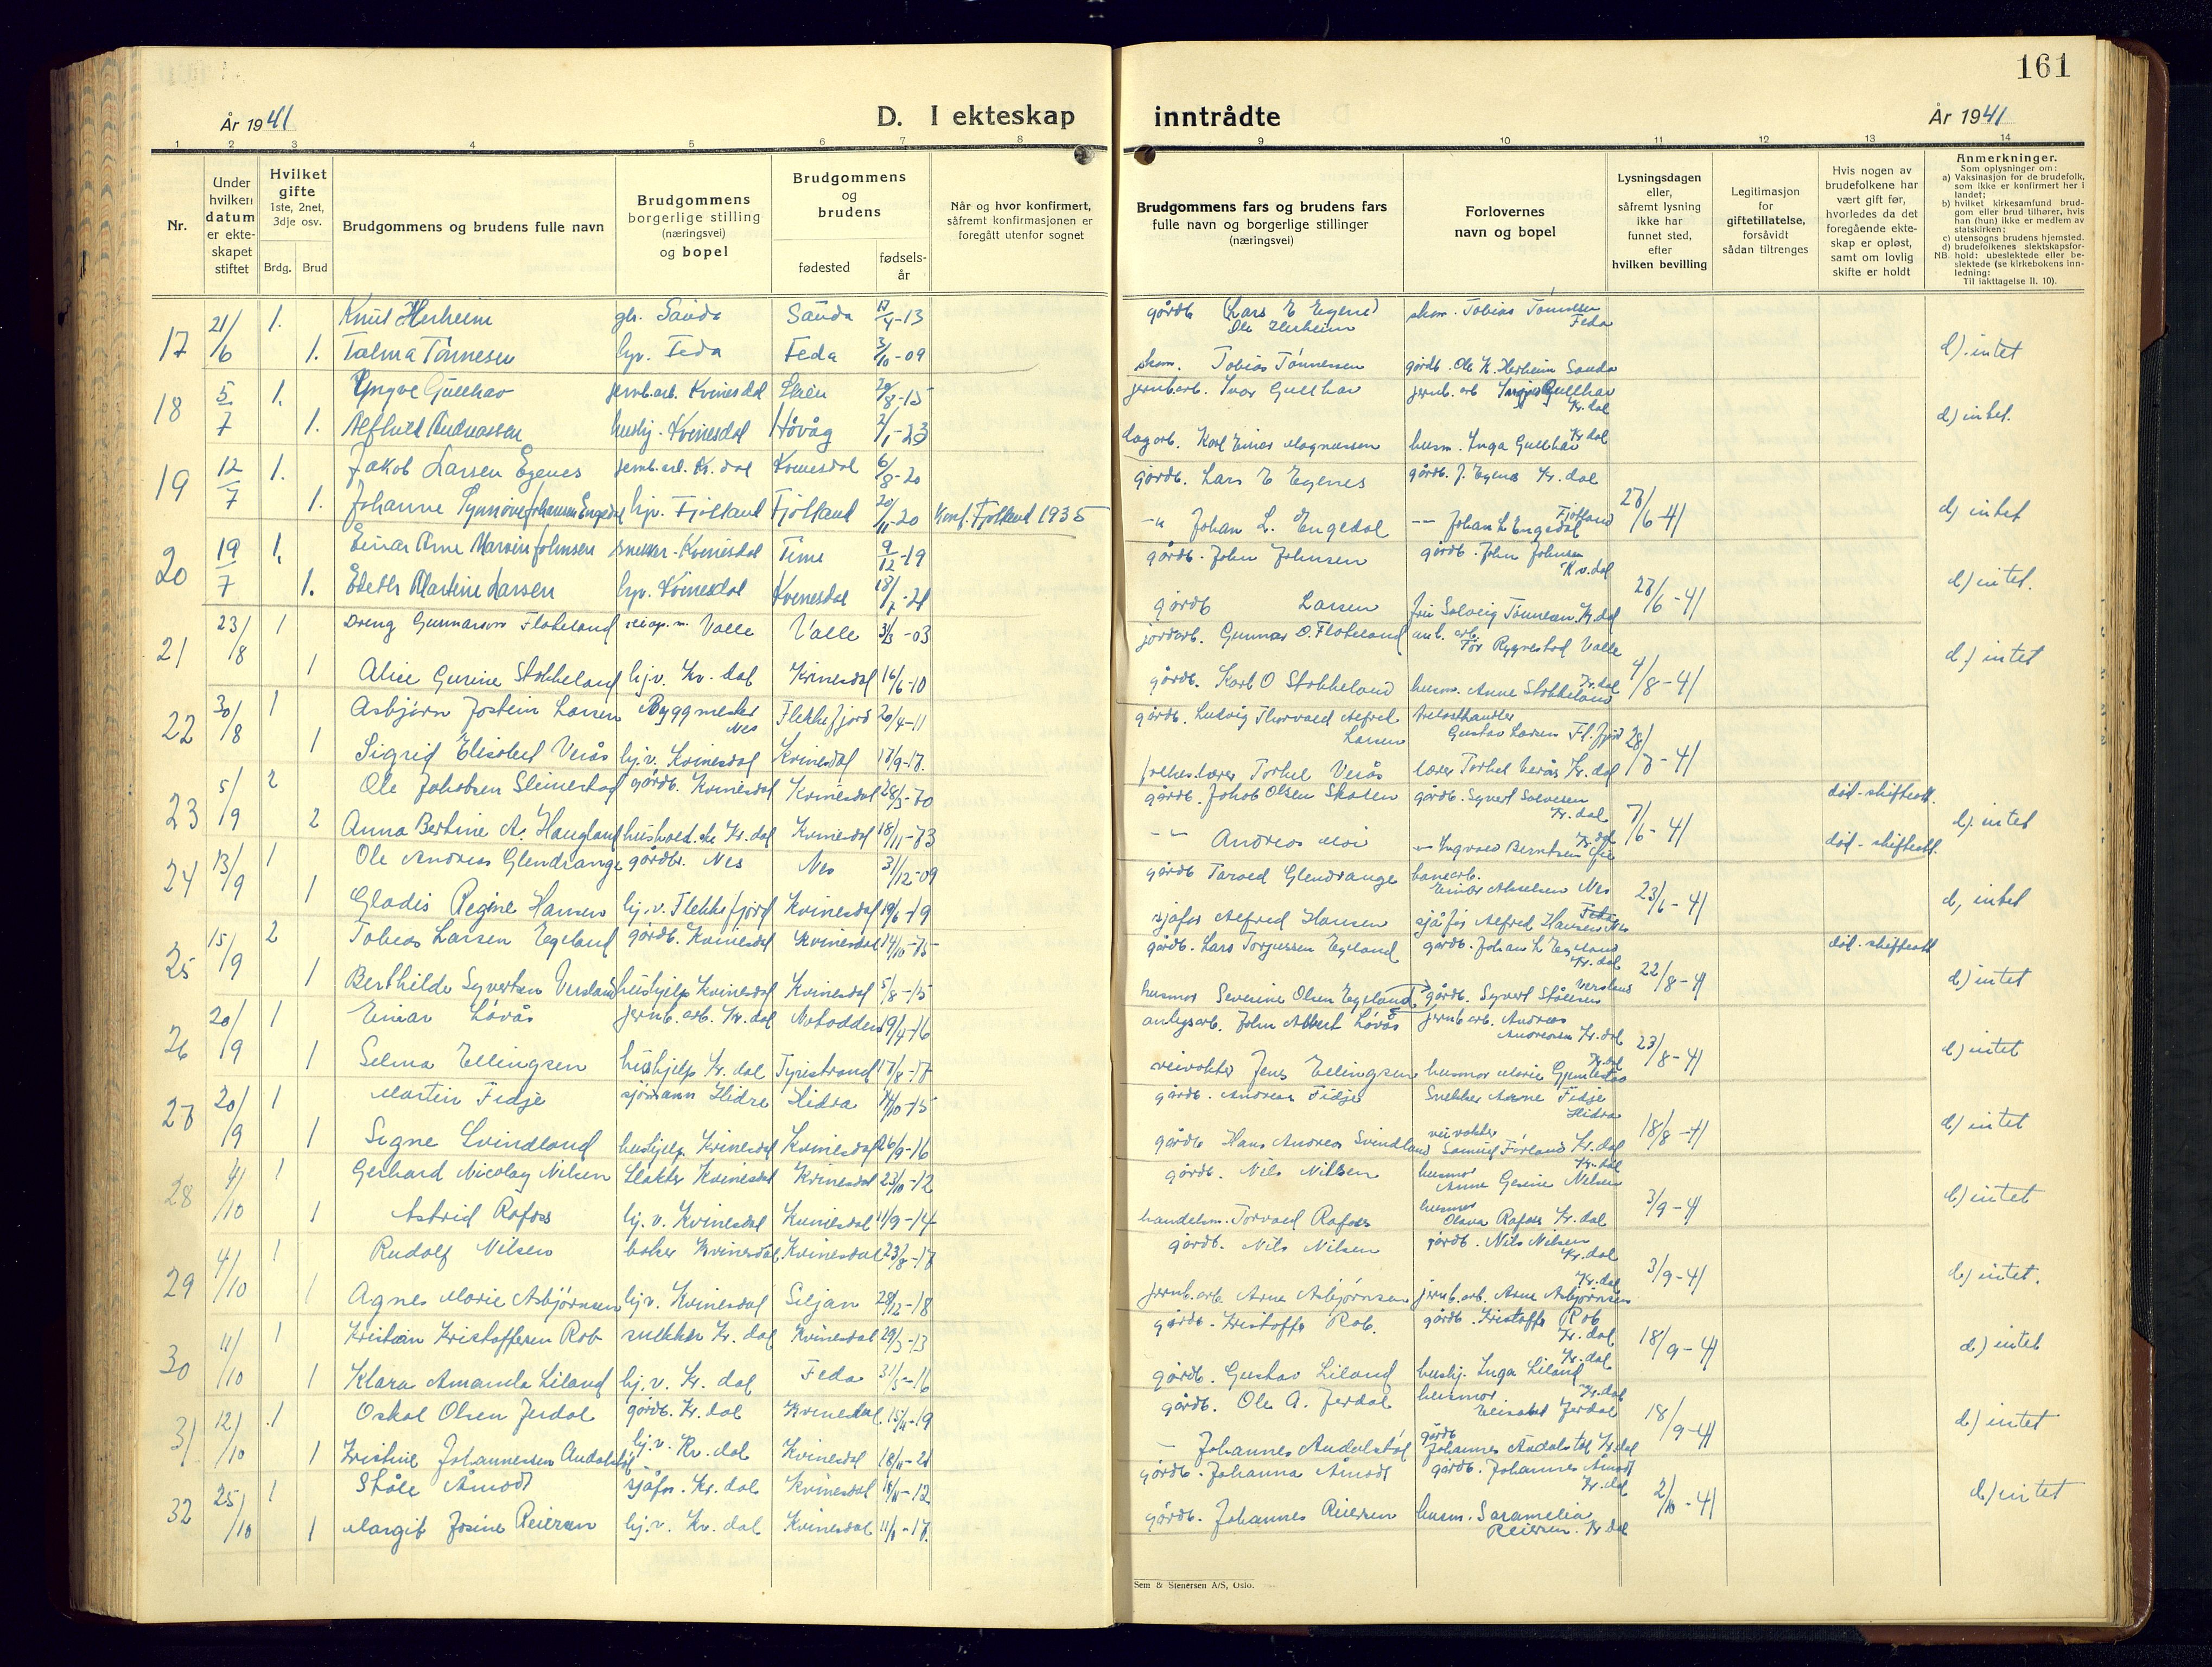 161
År 1941
D. I ekteskap
inntrådte
År 1941
1 2 3 4 5 6 7 8 9 10 11 12 13 14
Nr.
Under hvilken datum er ekteskapet stiftet
Hvilket gifte 1ste, 2net, 3dje osv.
Brdg. Brud
Brudgommens og brudens fulle navn
Brudgommens borgerlige stilling (næringsvei) og bopel
Brudgommens og brudens
fødested
fødselsår
Når og hvor konfirmert, såfremt konfirmasjonen er foregått utenfor sognet
Brudgommens fars og brudens fars fulle navn og borgerlige stillinger (næringsvei)
Forlovernes navn og bopel
Lysningsdagen eller, såfremt lysning ikke har funnet sted, efter hvilken bevilling
Legitimasjon for giftetillatelse, forsåvidt sådan tiltrenges
Hvis nogen av brudefolkene har vært gift før, hvorledes da det foregående ekteskap er opløst, samt om lovlig skifte er holdt
Anmerkninger.
Som oplysninger om:
a) Vaksinasjon for de brudefolk, som ikke er konfirmert her i landet;
b) hvilket kirkesamfund brudgom eller brud tilhører, hvis han (hun) ikke er medlem av statskirken;
c) utensogns brudens hjemsted.
d) brudefolkenes slektskapsforhold: ubeslektede eller beslektede (se kirkebokens innledning:
NB.
Til iakttagelse II. 10).
17 21/6 1. Knut Herheim Sauda Sauda 17/4-13 gårdb (Lars E Egenes) Ole Herheim skom. Tobias Tønnesen Feda
1. Talma Tønnesen hjv. Feda Feda 3/10-09 skom. Tobias Tønnessen gårdb. Ole K. Herheim Sauda d) intet
18 5/7 1. Yngve Gullhav jernb.arb. Kvinesdal Skien 20/8-15 jernb.arb. Ivar Gullhav jernb. arb Gullhav Kv.dal
1. Alfhild Andreassen hushj. Kvinesdal Høvåg 2/1-23 dagarb. Karl Einar Magnussen husm. Inga Gullhav Kv.dal d) intet.
19 12/7 1. Jakob Larsen Egenes jernb.arb. Kv.dal Kvinesdal 6/8-20 gårdb. Lars E Egenes gårdb. J. Egenes Kv.dal
1. Johanne Synnøve Johansen Engedal hjv. Fjotland Fjotland 20/11-20 Konf. Fjotland 1935 -"- Johan L. Engedal -- Johan L Engedal Fjotland 28/6-41 d) intet
20 19/7 1. Einar Arne Marvin Johnsen snekker - Kvinesdal Time 9/12-19 gårdb. John Johnsen gårdb. John Johnsen Kv.dal
1. Edith Martine Larsen hjv. Kvinesdal Kvinesdal gårdb Larsen fru Solveig Tønnesen Kv.dal 28/6-41 d) intet.
21 23/8 1 Dreng Gunnarson Flateland Valle Valle -03 jordarb. Gunnar O. Flateland anl. arb. Tor Rygnestad Valle
1 Alice Gurine Stokkeland hj.v. Kv.dal Kvinesdal 16/6-10 gårdb. Karl O Stokkeland husm. Anne Stokkeland Kv.dal 4/8-41 d) intet
22 30/8 1 Asbjørn Jostein Larsen Byggmester Nes Flekkefjord 20/4-11 gårdb. Ludvig Thorvald Alfred Larsen trelasthandler Gustav Larsen Fl.fjord
1 Sigrid Elisabet Verås hj.v. Kvinesdal Kvinesdal 17/9-17. lærer Torkel Verås lærer Torkel Verås Kv.dal 28/7-41
23 5/9 2 Ole Jakobsen Slimestad gårdb. Kvinesdal Kvinesdal 28/3-70 gårdb. Jakob Olsen Skolen gårdb. Syvert Salvesen Kv.dal død - skifteatt.
2 Anna Bertine A. Haugland Kv.dal Kvinesdal 18/11-73 -"- Andreas Moi -"- Ingvald Berntsen Kv.dal 7/6-41 død - skifteatt. d) intet
24 13/9 1 Ole Andreas Glendrange gårdbr. Nes Nes 31/12-09 gårdb Tarald Glendrange banearb. Einar Akselsen Nes
1 Gladis Regine Hansen hj.v. Flekkefjord Kvinesdal 19/6-19 sjåfør Alfred Hansen sjåfør Alfred Hansen Nes 23/6-41 d) intet
25 15/9 2 Tobias Larsen Egeland gårdb. Kvinesdal Kvinesdal 14/10-75 gårdb. Lars Torjussen Egeland gårdb. Johan L Egeland Kv.dal død - skifteatt
1 Berthilde Syvertsen Versland hushjelp Kvinesdal Kvinesdal 5/8-15 husmor Severine Olsen Egeland gårdb. Syvert Stålesen Versland 22/8-41 d) intet
26 20/9 1 Einar Løvås jernb.arb. Kv.dal Notodden 19/4-16 anlegsarb. John Albert Løvås jernb.arb. Andreas Andreassen Kv.dal
1 Selma Ellingsen hushjelp Kv.dal Tyristrand 17/8-17 veivokter Jens Ellingsen husmor Marie Kv.dal 23/8-41 d) intet
27 20/9 1 Martin Fidje sjømann Hidra Hidra 14/10-15 gårdb. Andreas Fidje Snekker Arne Fidje Hidra
1 Signe Svindland hushjelp Kvinesdal Kvinesdal 26/9-16 gårdb Hans Andreas Svindland veivokter Samuel Førland Kv.dal 18/8-41 d) intet
28 4/10 1 Gerhard Nicolay Nilsen Slakter Kvinesdal Kvinesdal 23/10-12 gårdb. Nils Nilsen husmor Anne Gesine Nilsen Kv.dal
1 Astrid Rafoss hj.v. Kvinesdal Kvinesdal 11/9-14 handelsm. Torvald Rafoss husmor Olava Rafoss Kv.dal 3/9-41 d) intet
29 4/10 1 Rudolf Nilsen baker Kvinesdal Kvinesdal 23/8-17 gårdb. Nils Nilsen gårdb. Nils Nilsen Kv.dal
1 Agnes Marie Asbjørnsen hjv. Kvinesdal Siljan 28/12-18 jernb.arb Arne Asbjørnsen jernb.arb. Arne Asbjørnsen Kv.dal 3/9-41 d) intet.
30 11/10 1 Kristian Kristoffersen Rob snekker Kv.dal Kvinesdal 29/3-13 gårdb. Kristoffer Rob. gårdb. Kristoffer Rob Kv.dal
1 Klara Amanda Liland hj.v. Kv.dal Feda 31/5-16 gårdb. Gustav Liland hushj. Inga Liland Kv.dal 18/9-41 d) intet
31 12/10 1 Oskal Olsen Jerdal gårdb. Kv.dal Kvinesdal -19 gårdb. Ole A. Jerdal husmor Elisabet Jerdal Kv.dal
1 Kristine Johannessen Audalstøl hj.v. Kv.dal Kvinesdal - Johannes Audalstøl gårdb Johannes Audalstøl Kv.dal 18/9-41 d) intet
32 25/10 1 Ståle Åmodt sjåfør. Kv.dal Kvinesdal -12 gårdb. Johanna Åmodt gårdb. Johannes Åmodt Kv.dal
1 Margit Josine Reiersen hj.v. Kv.dal Kvinesdal gårdb. Johannes Reiersen husm. Saramelia Reiersen Kv.dal 2/10-41 d) intet
Sem & Stenersen A/S, Oslo.